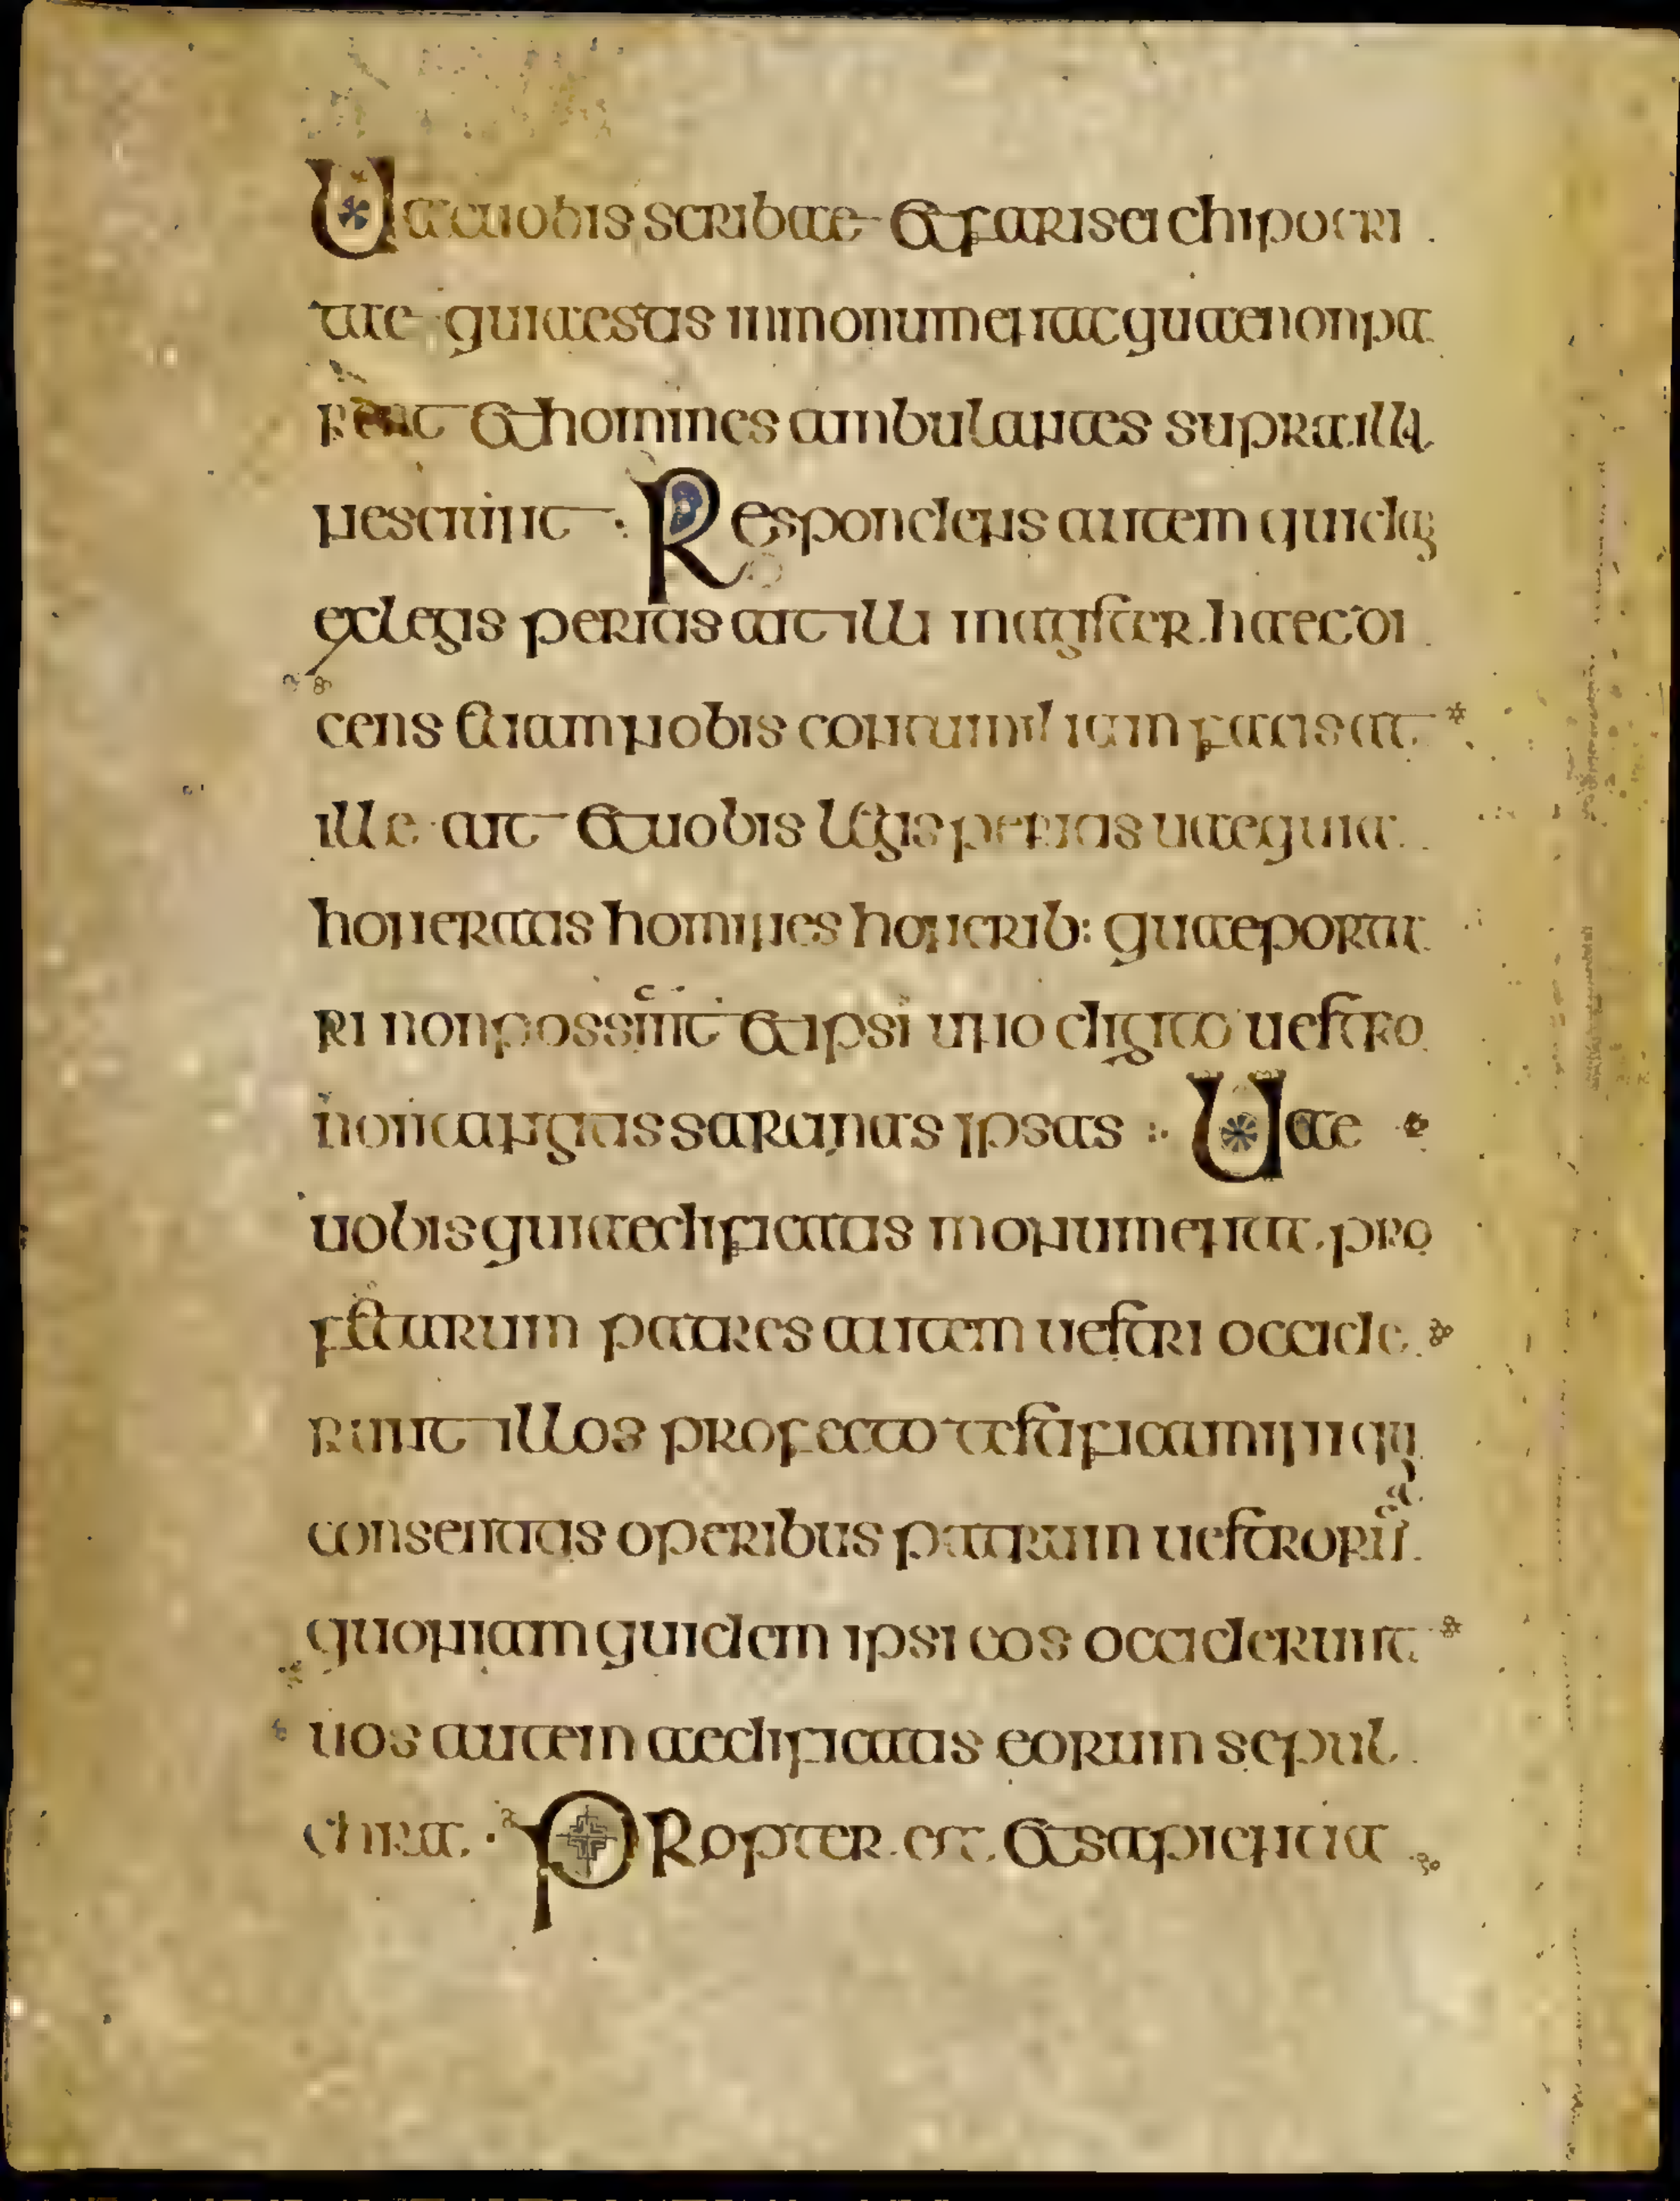 Uae uobis scribae et farisei chipocri
tae quia estis in monumenta quae non pa
rent et homines ambulantes supra illa
nesciunt :· Respondens autem quidam
ex legis peritis ait illi magister haec di
cens etiam nobis contumiliam facis at
ille ait et uobis legis peritis uae quia
honeratis homines honerib: quae portar
ri non possunt et ipsi uno digito uestro
non tangitis sarcinas ipsas :· Uae
uobis qui aedificatis monumenta pro
fetarum patres autem uestri occide
runt illos profecto testificamini qui
consentitis operibus patrum uestrorum
quoniam quidem ipsi eos occiderunt
uos autem aedificatis eorum sepul
chra · Propter et sapientia